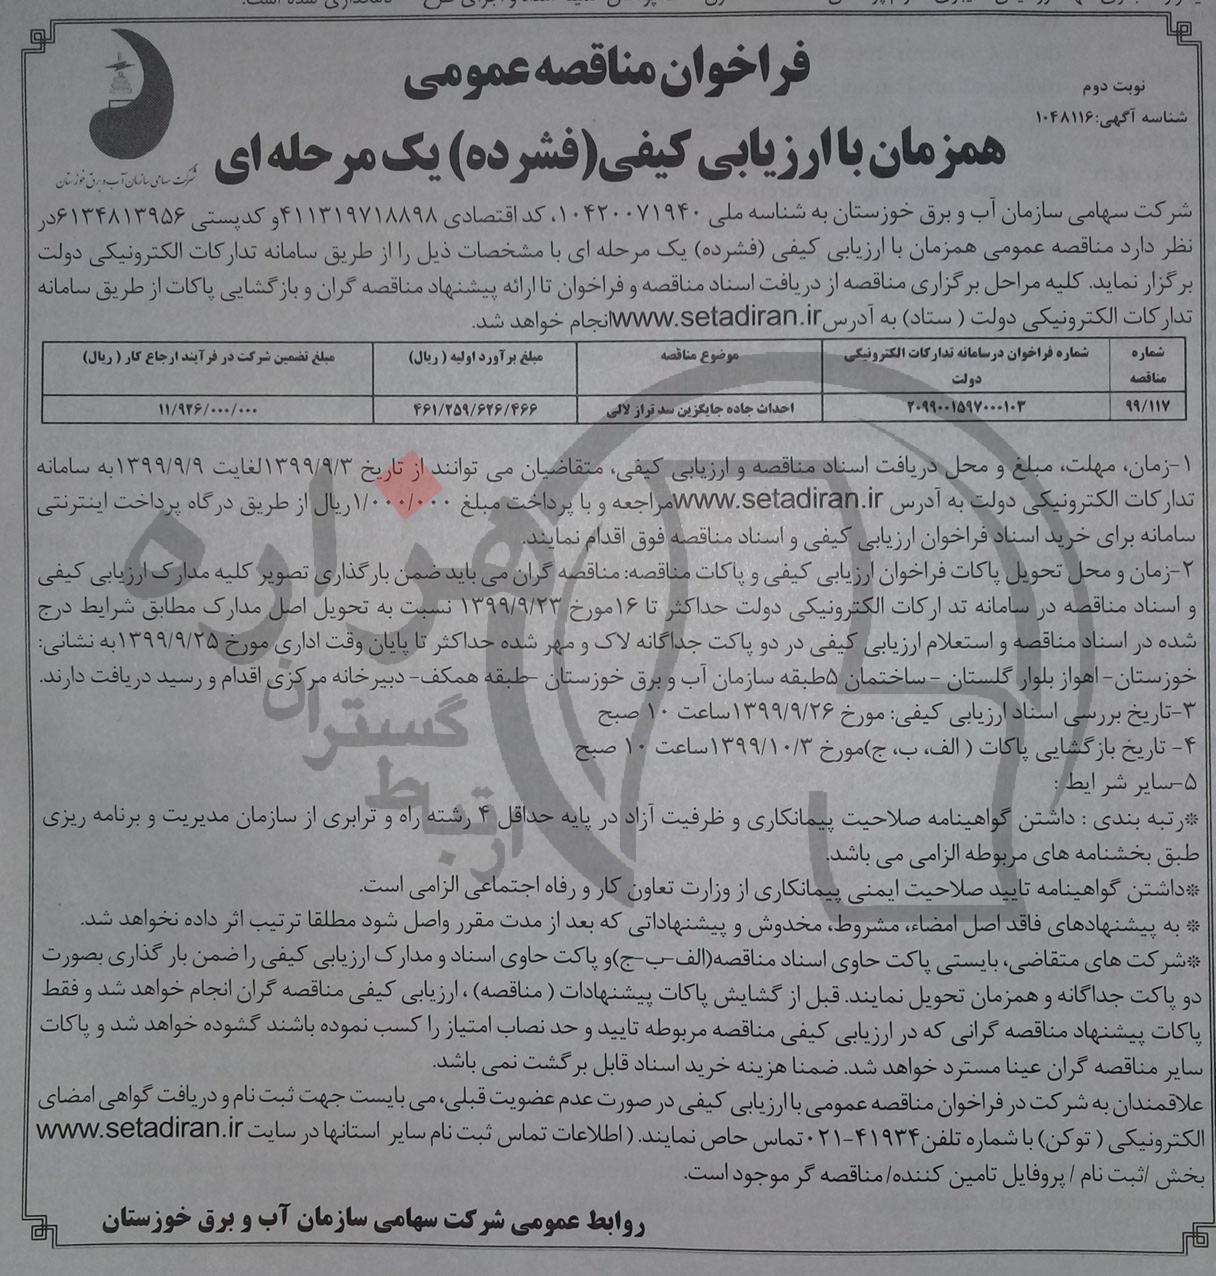 فراخوان مناقصه عمومی
نوبت دوم
شناسه آگهی:۱۰۴۸۱۱۶
همزمان با ارزیابی کیفی(فشرده) یک مرحله ای
شرکت سهامی سازمان آب و برق خوزستان
شرکت سهامی سازمان آب و برق خوزستان به شناسه ملی ۱۰۴۲۰۰۷۱۹۴۰، کد اقتصادی ۴۱۱۳۱۹۷۱۸۸۹۸و کدپستی ۶۱۳۴۸۱۳۹۵۶در
نظر دارد مناقصه عمومی همزمان با ارزیابی کیفی (فشرده) یک مرحله ای با مشخصات ذیل را از طریق سامانه تدارکات الکترونیکی دولت
برگزار نماید. کلیه مراحل برگزاری مناقصه از دریافت اسناد مناقصه و فراخوان تا ارائه پیشنهاد مناقصه گران و بازگشایی پاکات از طریق سامانه
تدارکات الکترونیکی دولت ( ستاد) به آدرسwww.setadiran.irانجام خواهد شد.
شماره مناقصه | شماره فراخوان درسامانه تدارکات الکترونیکی دولت | موضوع مناقصه | مبلغ برآورد اولیه ( ریال) | مبلغ تضمین شرکت در فرآیند ارجاع کار ( ریال)
۹۹/۱۱۷ | ۲۰۹۹۰۰۱۵۹۷۰۰۰۱۰۳ | احداث جاده جایگزین سد تراز لالی | ۴۶۱/۲۵۹/۶۲۶/۴۶۶ | ۱۱/۹۲۶/۰۰۰/۰۰۰
۱-زمان، مهلت، مبلغ و محل دریافت اسناد مناقصه و ارزیابی کیفی، متقاضیان می توانند از تاریخ ۱۳۹۹/۹/۳لغایت ۱۳۹۹/۹/۹به سامانه
تدارکات الکترونیکی دولت به آدرس www.setadiran.irمراجعه و با پرداخت مبلغ ۱/۰۰۰/۰۰۰ریال از طریق درگاه پرداخت اینترنتی
سامانه برای خرید اسناد فراخوان ارزیابی کیفی و اسناد مناقصه فوق اقدام نمایند.
۲-زمان و محل تحویل پاکات فراخوان ارزیابی کیفی و پاکات مناقصه: مناقصه گران می باید ضمن بارگذاری تصویر کلیه مدارک ارزیابی کیفی
و اسناد مناقصه در سامانه تد ارکات الکترونیکی دولت حداکثر تا ۱۶مورخ ۱۳۹۹/۹/۲۳ نسبت به تحویل اصل مدارک مطابق شرایط درج
شده در اسناد مناقصه و استعلام ارزیابی کیفی در دو پاکت جداگانه لاک و مهر شده حداکثر تا پایان وقت اداری مورخ ۱۳۹۹/۹/۲۵به نشانی:
خوزستان- اهواز بلوار گلستان - ساختمان ۵طبقه سازمان آب و برق خوزستان -طبقه همکف- دبیرخانه مرکزی اقدام و رسید دریافت دارند.
۳-تاریخ بررسی اسناد ارزیابی کیفی: مورخ ۱۳۹۹/۹/۲۶ساعت ۱۰ صبح
۴- تاریخ بازگشایی پاکات ( الف، ب، ج)مورخ ۱۳۹۹/۱۰/۳ساعت ۱۰ صبح
۵-سایر شر ایط :
*رتبه بندی : داشتن گواهینامه صلاحیت پیمانکاری و ظرفیت آزاد در پایه حداقل ۴ رشته راه و ترابری از سازمان مدیریت و برنامه ریزی
طبق بخشنامه های مربوطه الزامی می باشد.
*داشتن گواهینامه تایید صلاحیت ایمنی پیمانکاری از وزارت تعاون کار و رفاه اجتماعی الزامی است.
* به پیشنهادهای فاقد اصل امضاء، مشروط، مخدوش و پیشنهاداتی که بعد از مدت مقرر واصل شود مطلقا ترتیب اثر داده نخواهد شد.
*شرکت های متقاضی، بایستی پاکت حاوی اسناد مناقصه(الف-ب-ج)و پاکت حاوی اسناد و مدارک ارزیابی کیفی را ضمن بار گذاری بصورت
دو پاکت جداگانه و همزمان تحویل نمایند. قبل از گشایش پاکات پیشنهادات ( مناقصه) ، ارزیابی کیفی مناقصه گران انجام خواهد شد و فقط
پاکات پیشنهاد مناقصه گرانی که در ارزیابی کیفی مناقصه مربوطه تایید و حد نصاب امتیاز را کسب نموده باشند گشوده خواهد شد و پاکات
سایر مناقصه گران عینا مسترد خواهد شد. ضمنا هزینه خرید اسناد قابل برگشت نمی باشد.
علاقمندان به شرکت در فراخوان مناقصه عمومی با ارزیابی کیفی در صورت عدم عضویت قبلی، می بایست جهت ثبت نام و دریافت گواهی امضای
الکترونیکی ( توکن) با شماره تلفن۴۱۹۳۴-۰۲۱تماس حاص نمایند. ( اطلاعات تماس ثبت نام سایر استانها در سایت www.setadiran.ir
بخش /ثبت نام / پروفایل تامین کننده/ مناقصه گر موجود است.
روابط عمومی شرکت سهامی سازمان آب و برق خوزستان
هزاره
گستران
ارتباط